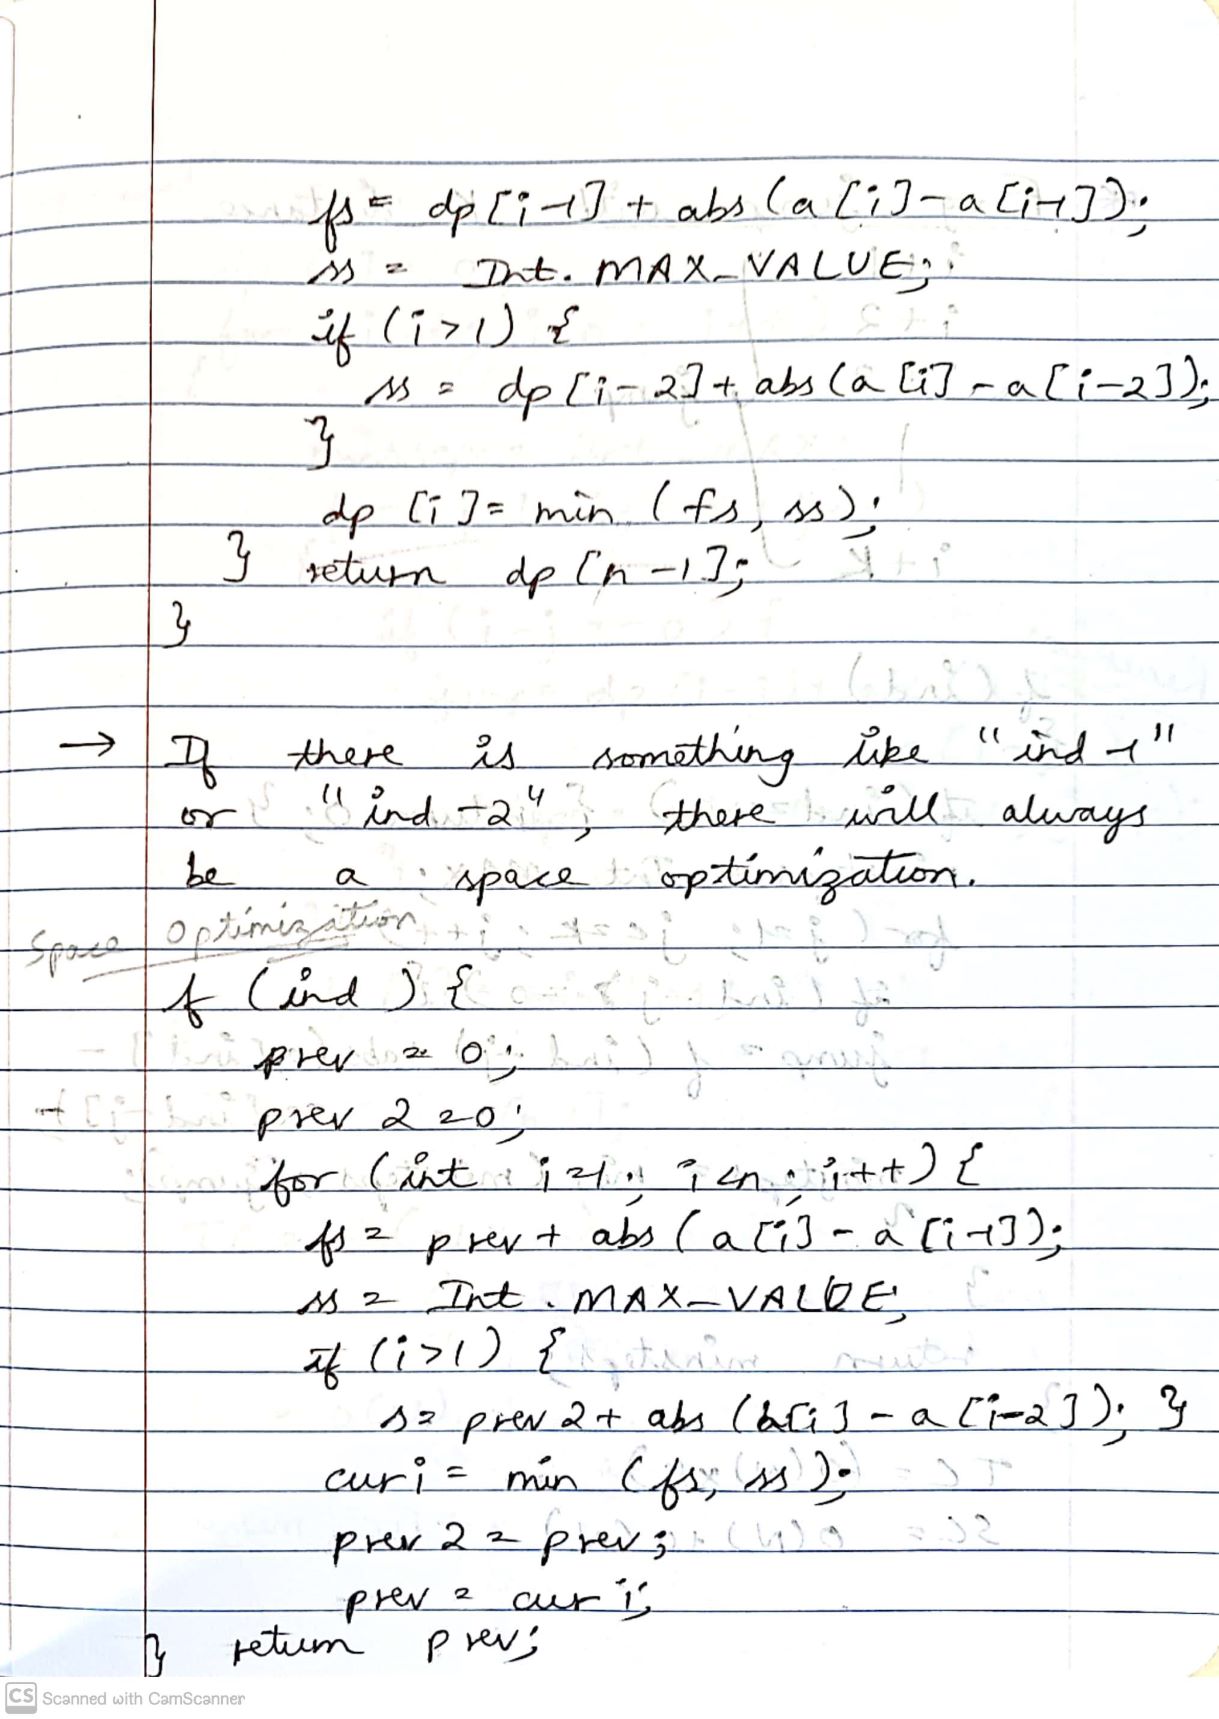 fs = dp[i-1] + abs(a[i]-a[i-1]);
ss = Int.MAX_VALUE;
if (i>1) {
ss = dp[i-2]+abs(a[i]-a[i-2]);
}
dp[i]= min (fs, ss);
} return dp[n-1];
}
→ If there is something like "ind-1"
or "ind-2", there will always
be a space optimization.
Space Optimization
f (ind) {
prev = 0;
prev2 = 0;
for (int i=1; i<n; i++) {
fs = prev + abs (a[i] - a[i-1]);
ss = Int.MAX_VALUE;
if (i>1) {
s= prev2+ abs (a[i] - a[i-2]); }
curi = min (fs, ss);
prev2 = prev;
prev = curi;
} return prev;
CS Scanned with CamScanner